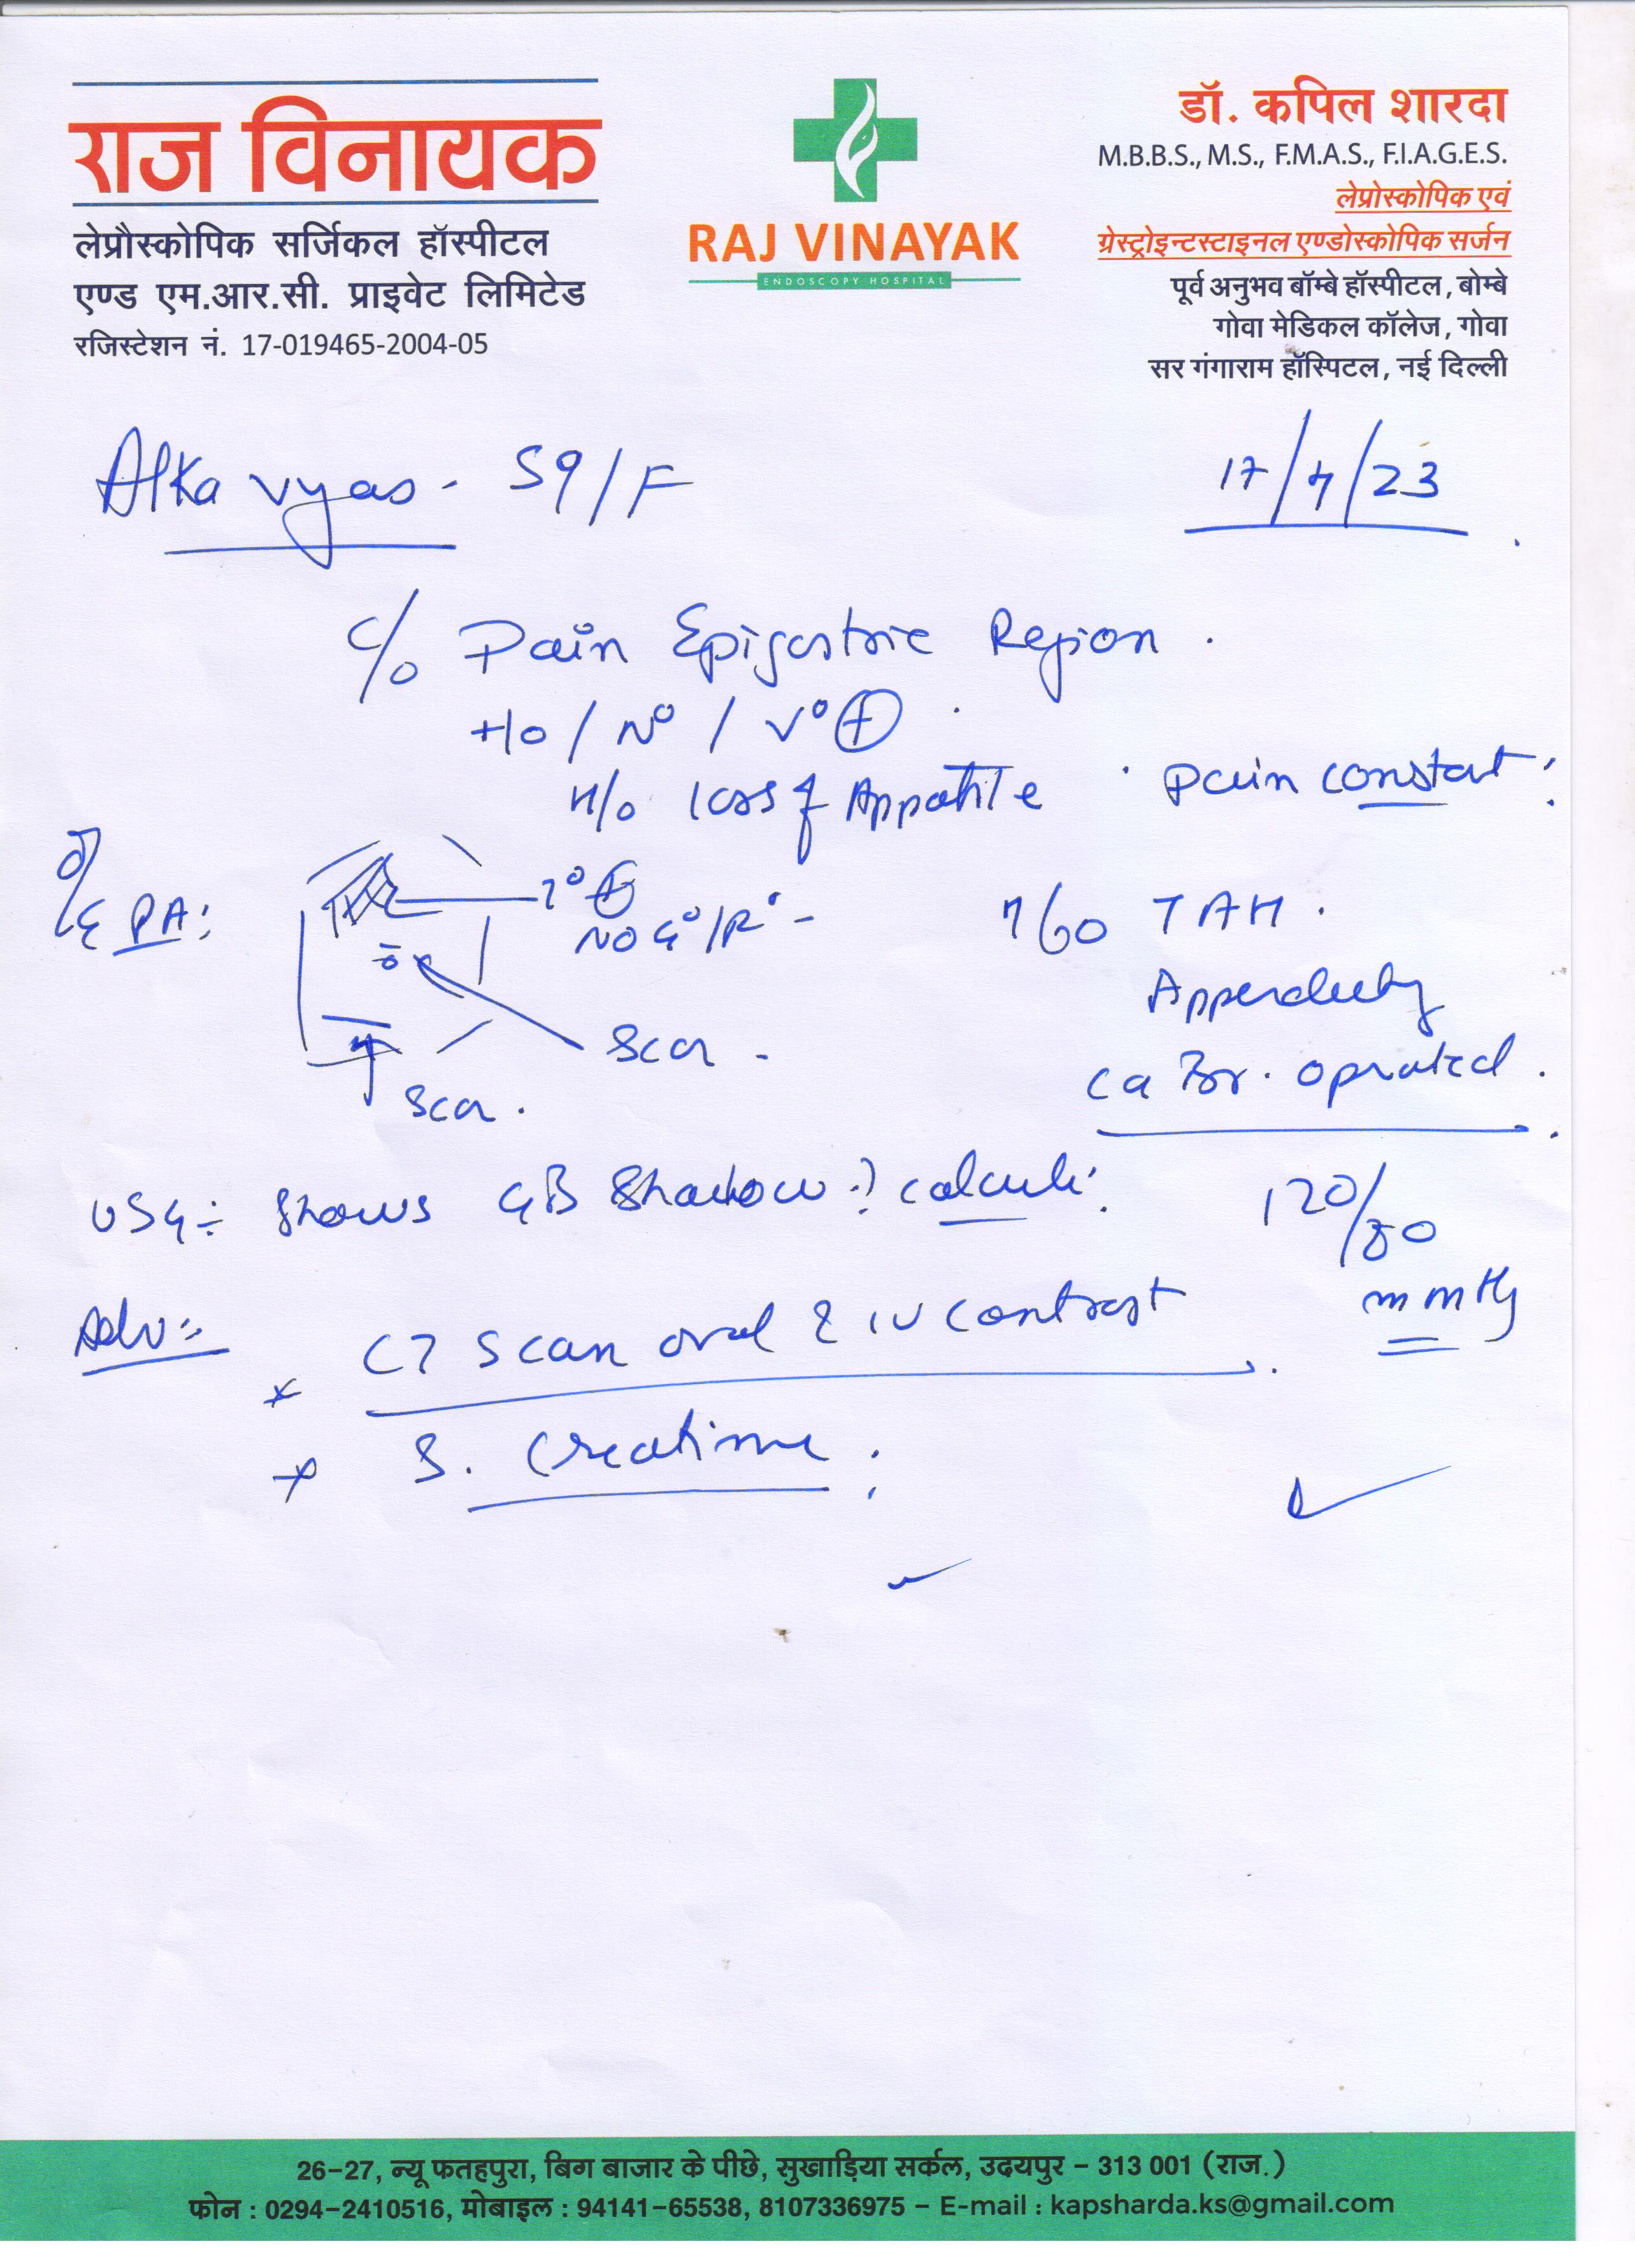 राज विनायक
लेप्रौस्कोपिक सर्जिकल हॉस्पीटल
एण्ड एम.आर.सी. प्राइवेट लिमिटेड
रजिस्टेशन नं. 17-019465-2004-05
RAJ VINAYAK
ENDOSCOPY HOSPITAL
डॉ. कपिल शारदा
M.B.B.S., M.S., F.M.A.S., F.I.A.G.E.S.
लेप्रोस्कोपिक एवं
ग्रेस्ट्रोइन्टस्टाइनल एण्डोस्कोपिक सर्जन
पूर्व अनुभव बॉम्बे हॉस्पीटल, बोम्बे
गोवा मेडिकल कॉलेज, गोवा
सर गंगाराम हॉस्पिटल, नई दिल्ली
Alka Vyas - 59/F
17/4/23
C/o Pain Epigastric Region.
H/o / N° / V° ⊕.
H/o loss of Appatite . Pain constant:
O/E PA:
T° ⊕
NO G°/R° -
Scar -
Scar.
H/o TAH.
Appendecty
Ca Br. oprated.
USG÷ Shows GB Shadow ? calculi.
120/80
mmHg
Adv:-
* CT Scan oral & IV contrast.
* S. Creatinine.
26–27, न्यू फतहपुरा, बिग बाजार के पीछे, सुखाड़िया सर्कल, उदयपुर – 313 001 (राज.)
फोन : 0294–2410516, मोबाइल : 94141–65538, 8107336975 – E-mail : kapsharda.ks@gmail.com